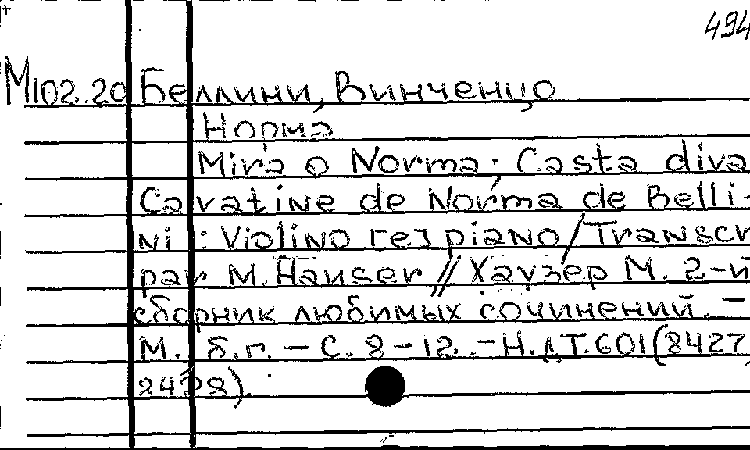 494
М102.20 Беллини, Винченцо
Норма
Mira o Norma; Casta diva
Cavatine de Norma de Belli-
ni : Violino [e] piano / Transcr
par M. Hauser // Хаузер М. 2-й
сборник любимых сочинений. –
М. б.г. – С. 8 – 12. – Н.д.Т.601(8427,
8428).